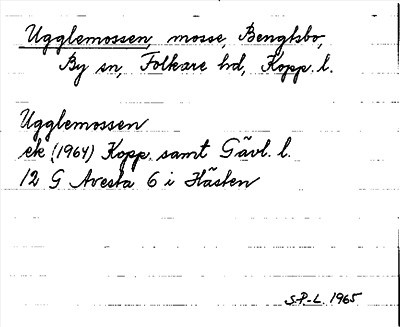 Ugglemossen, mosse, Bengtsbo,
By sn, Folkare hd, Kopp. l.
Ugglemossen
ek (1964) Kopp. samt Gävl. l.
12 G Avesta 6 i Hästen
S.P.L. 1965